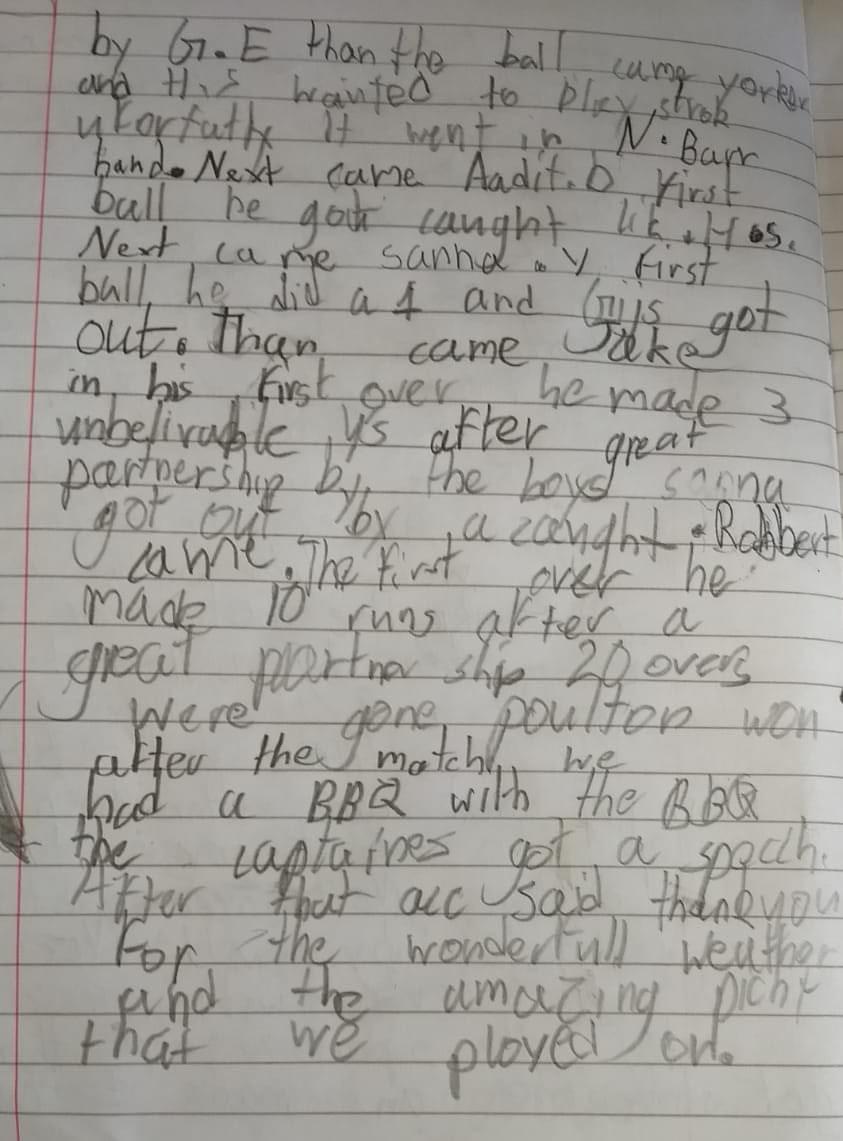 by G.E than the ball came yorker
and H.S wanted to play strok
it went in N. Barr
hand. Next came Aadit.D first
ball he got caught H.S.
Next came sanna.y first
ball he did a 4 and Gys got
out. Than came Jake
in his first over he made 3
unbelivable 4's after great
partnership by the boys sanna
got out by a caught. Robbert
came. The first over he
made 10 runs after a
great partner ship 20 overs
were gone poulton won
after the match we
had a BBQ with the BBQ
the captaines got a spech.
After that acc said thankyou
for the wonderfull weather
and the amazing picht
that we ployed on.